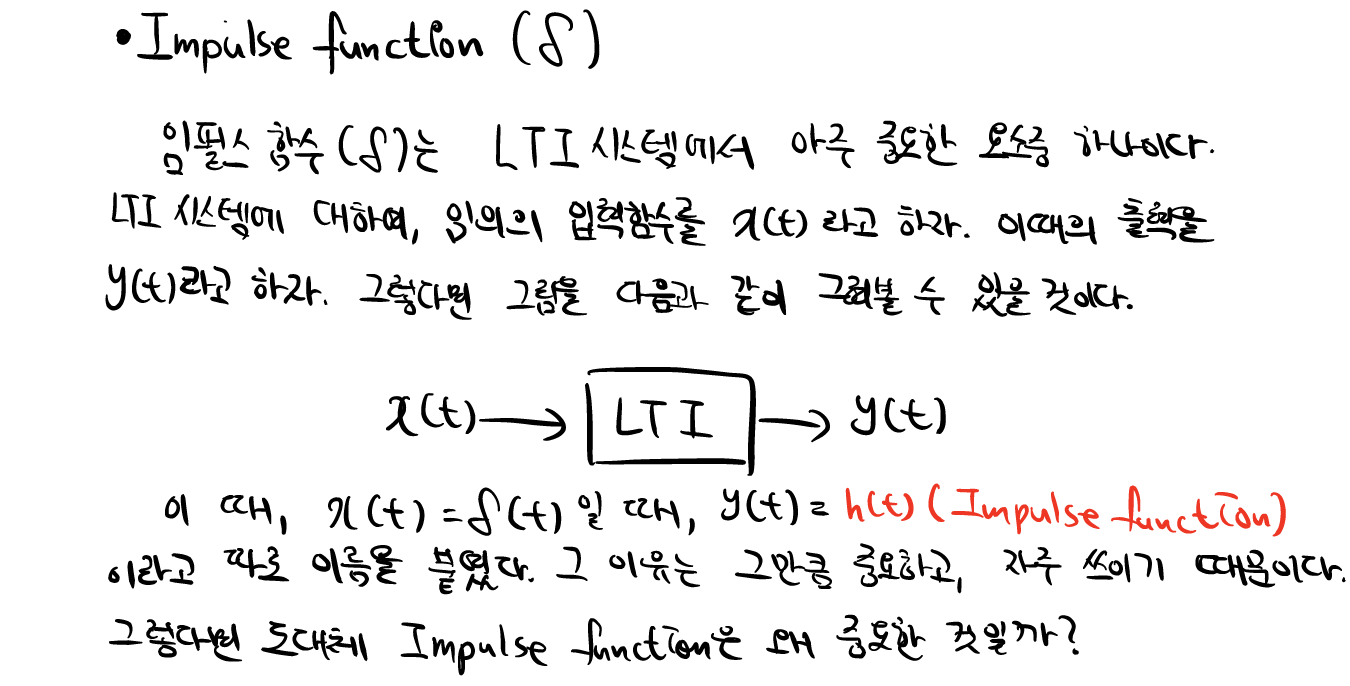 • Impulse function (δ)
임펄스 함수(δ)는 LTI 시스템에서 아주 중요한 요소중 하나이다.
LTI 시스템에 대하여, 임의의 입력함수를 x(t) 라고 하자. 이때의 출력을
y(t)라고 하자. 그렇다면 그림을 다음과 같이 그려볼 수 있을 것이다.
x(t) → LTI → y(t)
이 때, x(t) = δ(t) 일 때, y(t) = h(t) (Impulse function)
이라고 따로 이름을 붙였다. 그 이유는 그만큼 중요하고, 자주 쓰이기 때문이다.
그렇다면 도대체 Impulse function은 왜 중요한 것일까?